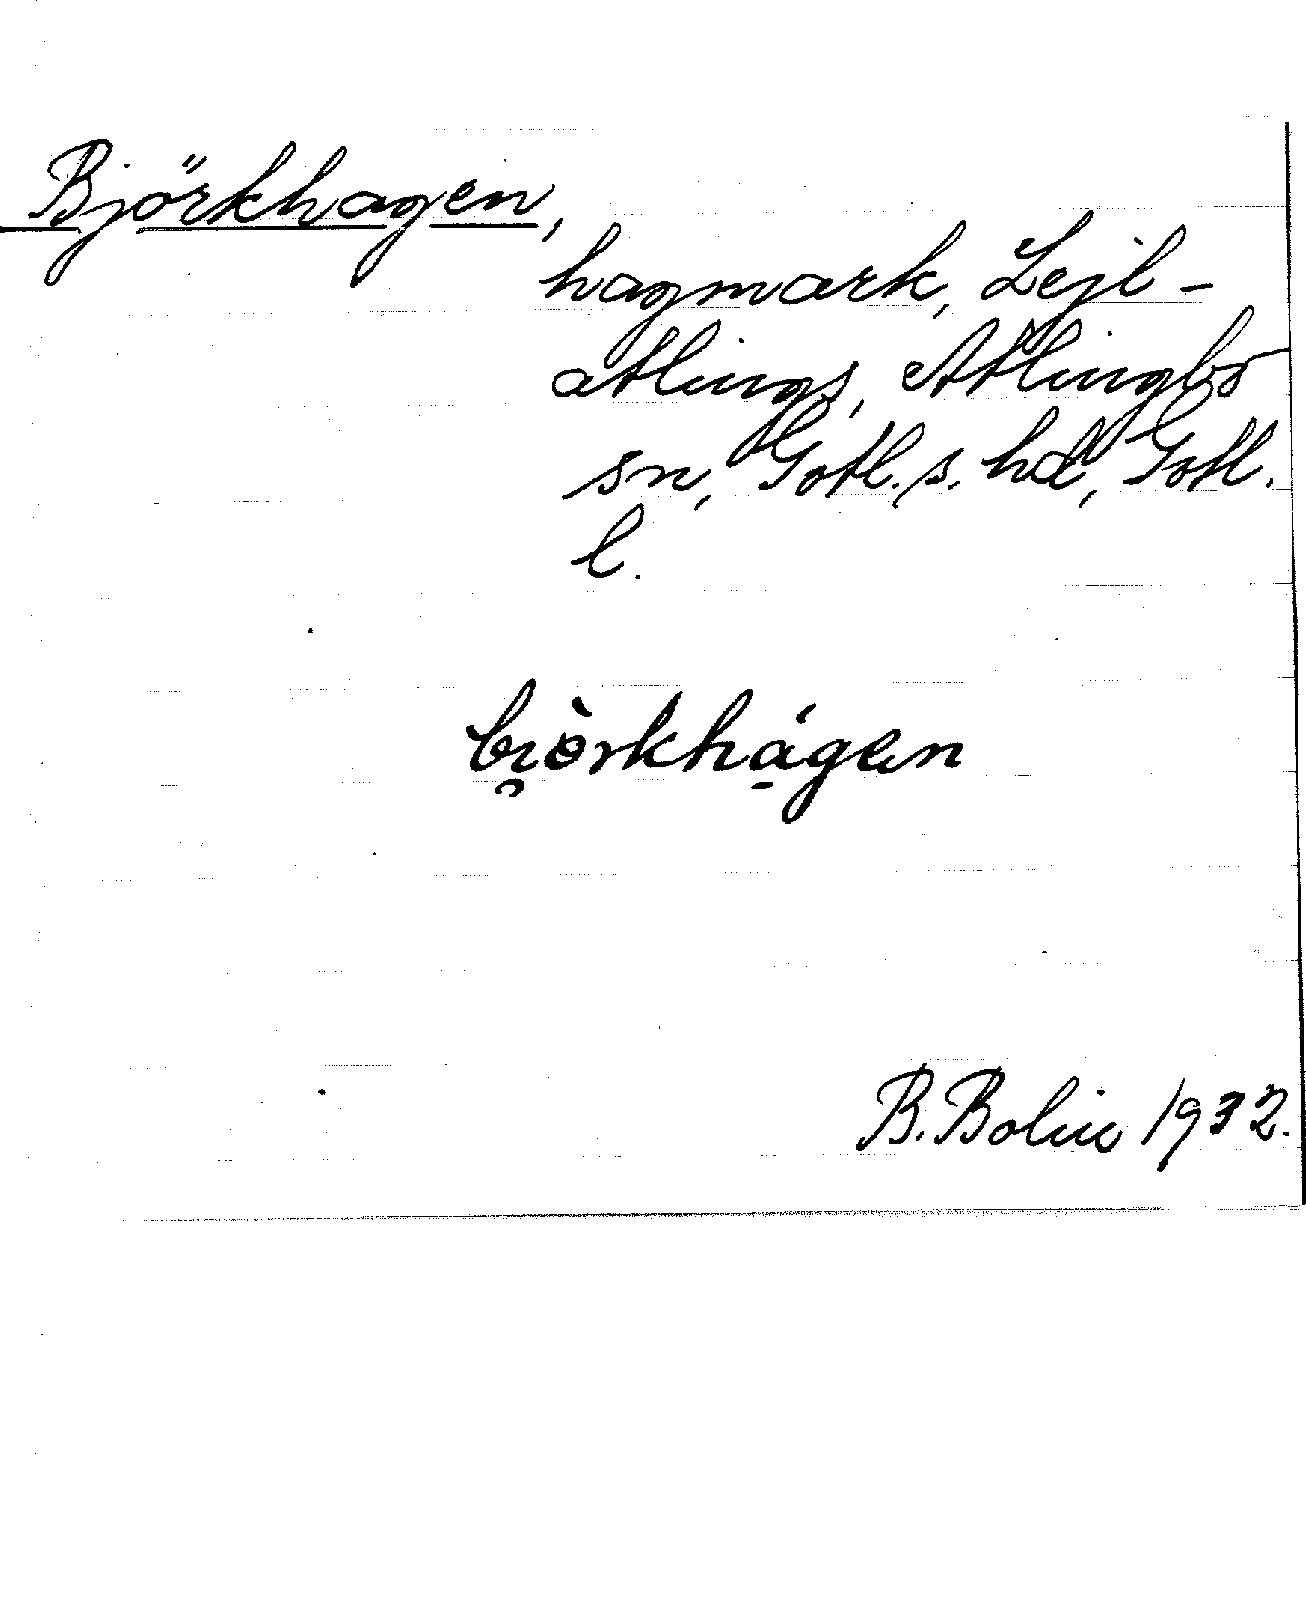 Björkhagen,
hagmark, Lejl-
atlings, Atlingbo
sn, Gotl. s. hd, Gotl.
l.
bi̯òrkhá̱gan
B. Bolin 1932.